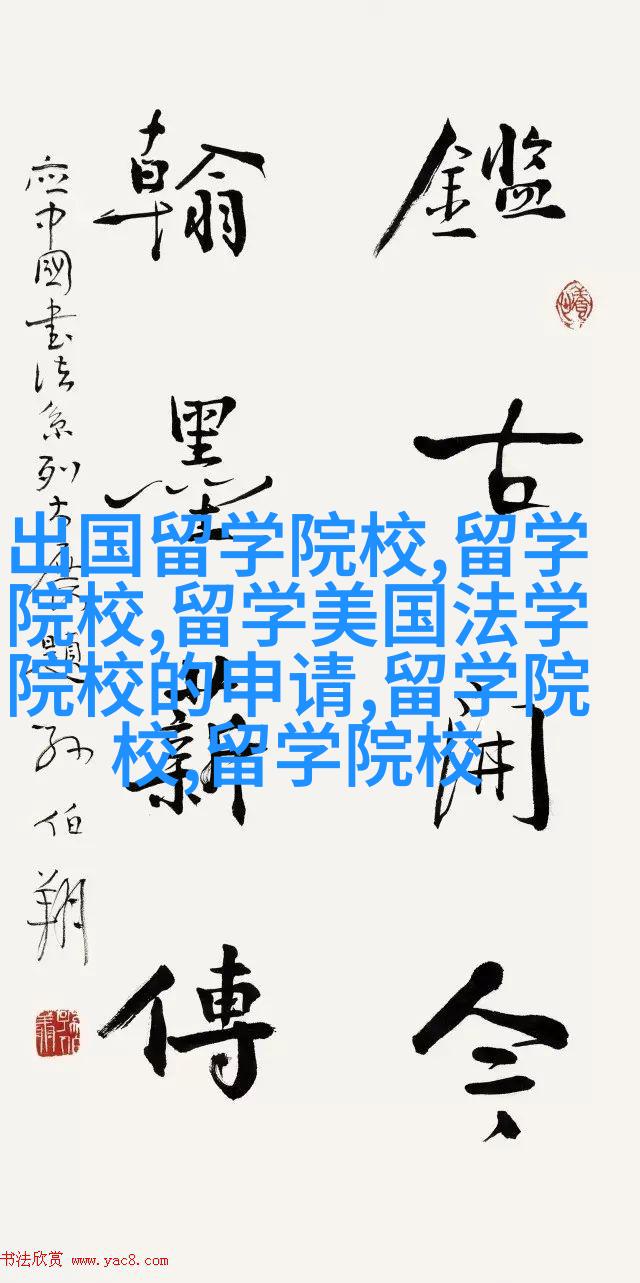 鑑古開今
翰墨薪傳
應中國書法系列大展題 孫伯翔
出国留学院校,留学
院校,留学美国法学
院校的申请,留学院
校,留学院校
书法欣赏 www.yac8.com